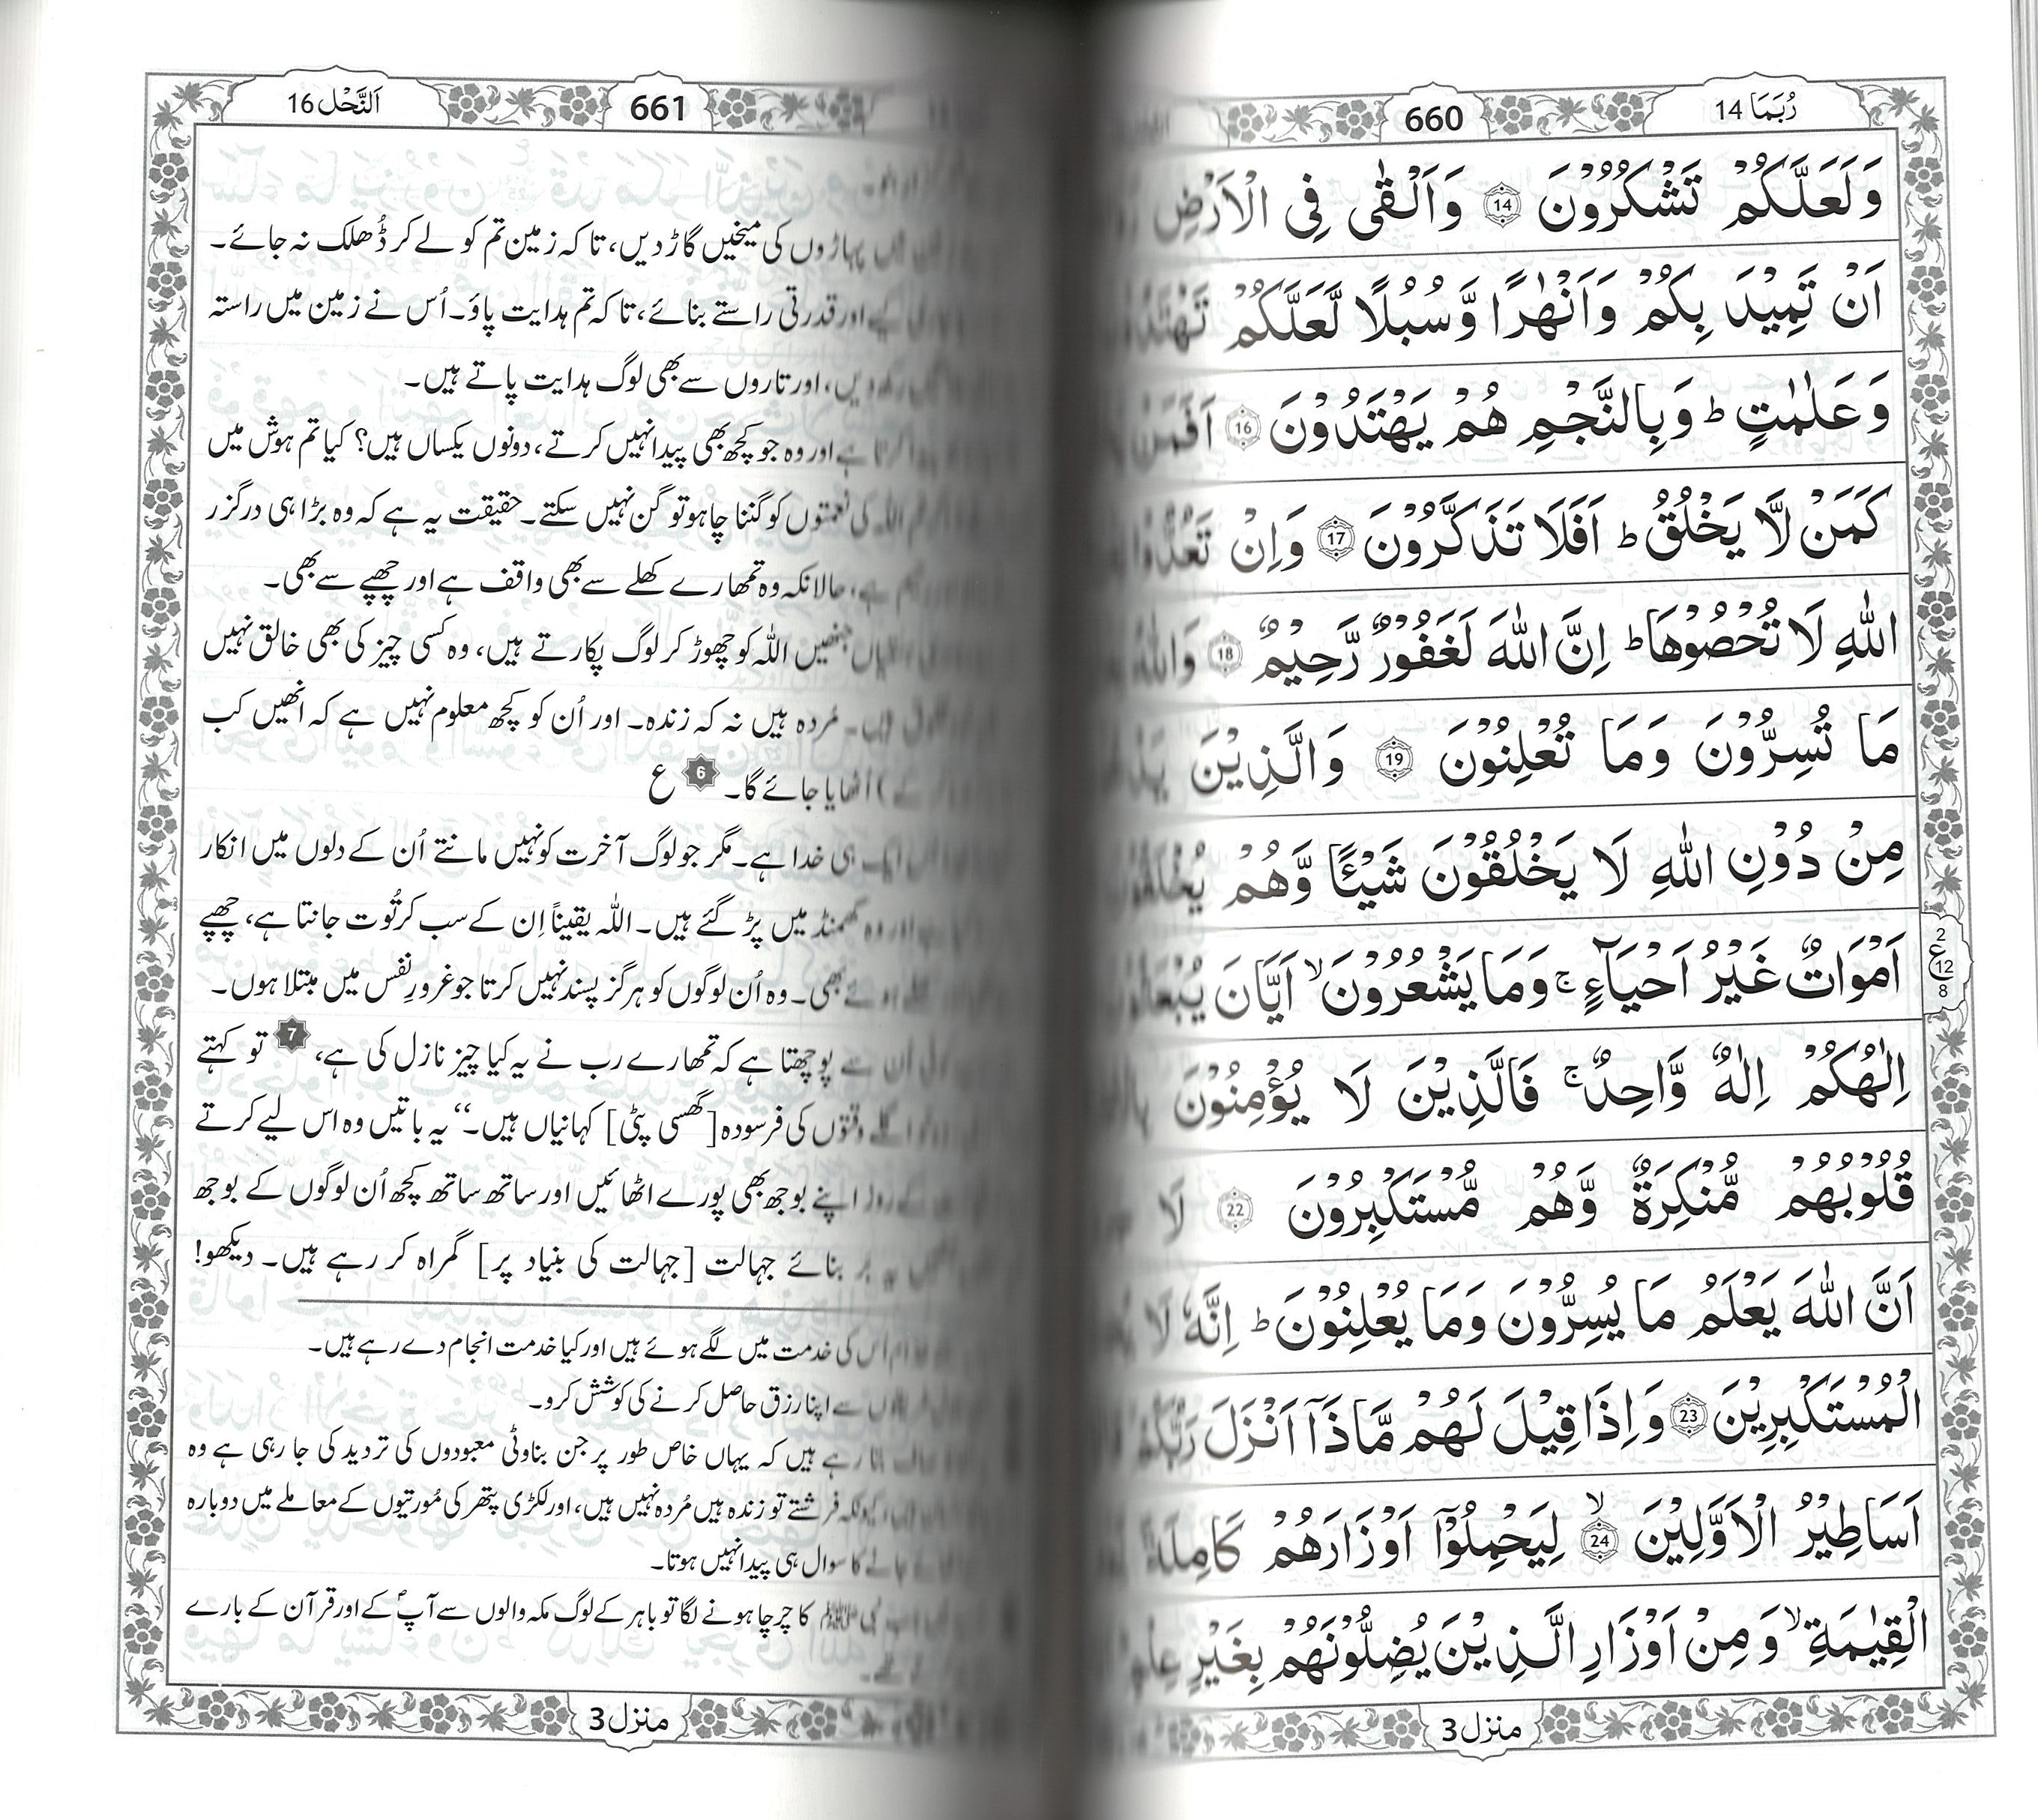 رُبَمَا 14
660
وَلَعَلَّكُمْ تَشْكُرُوْنَ 14 وَاَلْقٰى فِى الْاَرْضِ
اَنْ تَمِيْدَ بِكُمْ وَاَنْهٰرًا وَّسُبُلًا لَّعَلَّكُمْ
وَعَلٰمٰتٍ ؕ وَبِالنَّجْمِ هُمْ يَهْتَدُوْنَ 16 اَفَمَنْ
كَمَنْ لَّا يَخْلُقُ ؕ اَفَلَا تَذَكَّرُوْنَ 17 وَاِنْ تَعُدُّوْا
اللّٰهِ لَا تُحْصُوْهَا ؕ اِنَّ اللّٰهَ لَغَفُوْرٌ رَّحِيْمٌ 18 وَاللّٰهُ
مَا تُسِرُّوْنَ وَمَا تُعْلِنُوْنَ 19 وَالَّذِيْنَ
مِنْ دُوْنِ اللّٰهِ لَا يَخْلُقُوْنَ شَيْـًٔا وَّهُمْ
اَمْوَاتٌ غَيْرُ اَحْيَآءٍ ۚ وَمَا يَشْعُرُوْنَ ۙ اَيَّانَ
2
ع
12
8
اِلٰهُكُمْ اِلٰهٌ وَّاحِدٌ ۚ فَالَّذِيْنَ لَا يُؤْمِنُوْنَ
قُلُوْبُهُمْ مُّنْكِرَةٌ وَّهُمْ مُّسْتَكْبِرُوْنَ 22 لَا
اَنَّ اللّٰهَ يَعْلَمُ مَا يُسِرُّوْنَ وَمَا يُعْلِنُوْنَ ؕ اِنَّهٗ لَا
الْمُسْتَكْبِرِيْنَ 23 وَاِذَا قِيْلَ لَهُمْ مَّاذَآ اَنْزَلَ رَبُّكُمْ
اَسَاطِيْرُ الْاَوَّلِيْنَ ۙ 24 لِيَحْمِلُوْٓا اَوْزَارَهُمْ كَامِلَةً
الْقِيٰمَةِ ۙ وَمِنْ اَوْزَارِ الَّذِيْنَ يُضِلُّوْنَهُمْ بِغَيْرِ عِلْمٍ
منزل 3
661
اَلنَّحْل 16
پہاڑوں کی میخیں گاڑ دیں، تاکہ زمین تم کو لے کر ڈُھلک نہ جائے۔
اور قدرتی راستے بنائے، تاکہ تم ہدایت پاؤ۔ اُس نے زمین میں راستہ
دیں، اور تاروں سے بھی لوگ ہدایت پاتے ہیں۔
ہے اور وہ جو کچھ بھی پیدا نہیں کرتے، دونوں یکساں ہیں؟ کیا تم ہوش میں
اللہ کی نعمتوں کو گننا چاہو تو گن نہیں سکتے۔ حقیقت یہ ہے کہ وہ بڑا ہی درگزر
ہے، حالانکہ وہ تمھارے کھلے سے بھی واقف ہے اور چھپے سے بھی۔
جنھیں اللہ کو چھوڑ کر لوگ پکارتے ہیں، وہ کسی چیز کی بھی خالق نہیں
ہیں۔ مُردہ ہیں نہ کہ زندہ۔ اور اُن کو کچھ معلوم نہیں ہے کہ انھیں کب
) اُٹھایا جائے گا۔ 6 ع
ایک ہی خدا ہے۔ مگر جو لوگ آخرت کو نہیں مانتے اُن کے دلوں میں انکار
اور وہ گھمنڈ میں پڑ گئے ہیں۔ اللہ یقیناً اِن کے سب کرتُوت جانتا ہے، چھپے
ہوئے بھی۔ وہ اُن لوگوں کو ہرگز پسند نہیں کرتا جو غرورِ نفس میں مبتلا ہوں۔
اُن سے پوچھتا ہے کہ تمھارے رب نے یہ کیا چیز نازل کی ہے، 7 تو کہتے
اگلے وقتوں کی فرسودہ [گھسی پٹی] کہانیاں ہیں۔“ یہ باتیں وہ اس لیے کرتے
روز اپنے بوجھ بھی پورے اٹھائیں اور ساتھ ساتھ کچھ اُن لوگوں کے بوجھ
یہ بر بنائے جہالت [جہالت کی بنیاد پر] گمراہ کر رہے ہیں۔ دیکھو!
اس کی خدمت میں لگے ہوئے ہیں اور کیا خدمت انجام دے رہے ہیں۔
سے اپنا رزق حاصل کرنے کی کوشش کرو۔
بتا رہے ہیں کہ یہاں خاص طور پر جن بناوٹی معبودوں کی تردید کی جا رہی ہے وہ
کیونکہ فرشتے تو زندہ ہیں مُردہ نہیں ہیں، اور لکڑی پتھر کی مُورتیوں کے معاملے میں دوبارہ
جانے کا سوال ہی پیدا نہیں ہوتا۔
جب نبی ﷺ کا چرچا ہونے لگا تو باہر کے لوگ مکہ والوں سے آپؐ کے اور قرآن کے بارے
منزل 3